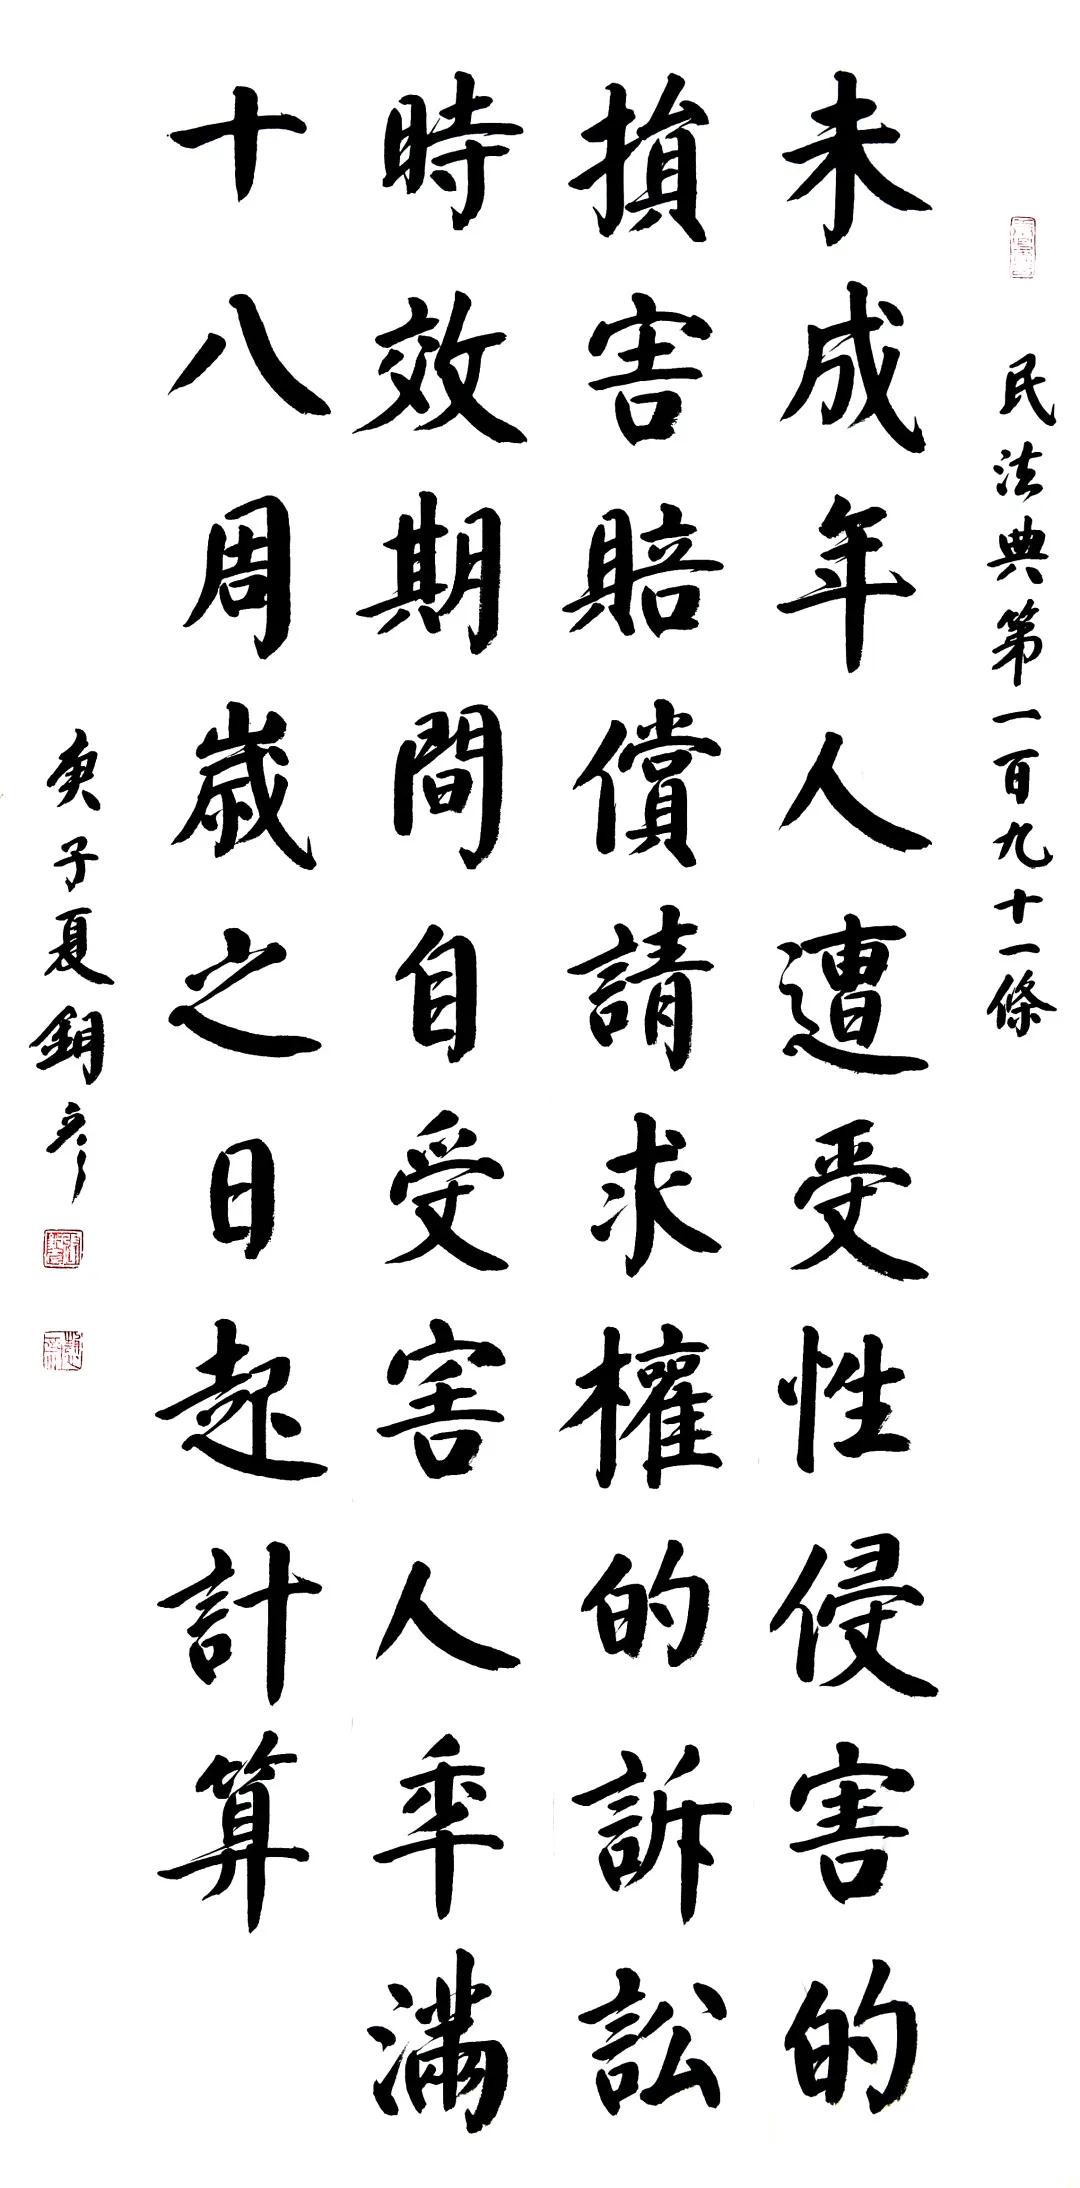 民法典第一百九十一條
未成年人遭受性侵害的
損害賠償請求權的訴訟
時效期間自受害人年滿
十八周歲之日起計算
庚子夏銷彥